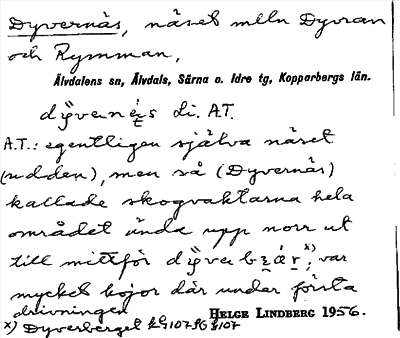 Dyvernäs, näset mlln Dyvran
och Rymman,
Älvdalens sn, Älvdals, Särna o. Idre tg, Kopparbergs län.
Li. A.T.
A.T.: egentligen själva näset
(udden), men så (Dyvernäs)
kallade skogvaktarna hela
området ända upp norr ut
till mittför x), var
mycket kojor där under första
drivningen HELGE LINDBERG 1956.
x) Dyverberget